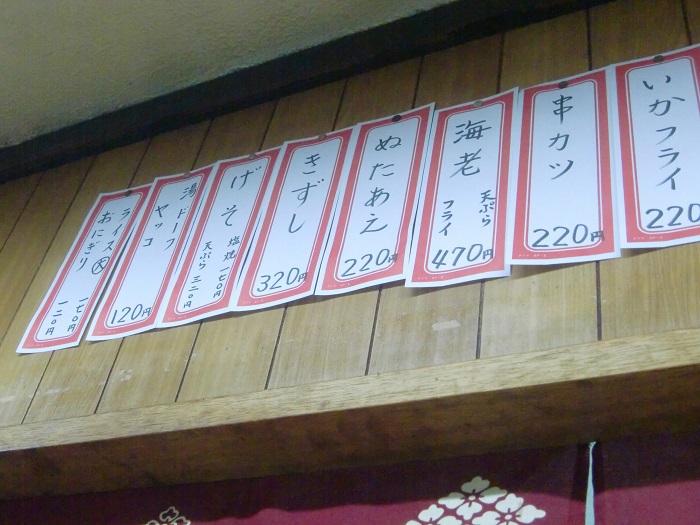 いかフライ
220
串カツ
220円
海老 天ぷら
フライ
470円
ぬたあえ
220円
きずし
320円
げそ 塩焼 一七〇円
天ぷら 三二〇円
湯ドーフ
ヤッコ
120円
ライス大 一七〇円
おにぎり 一二〇円